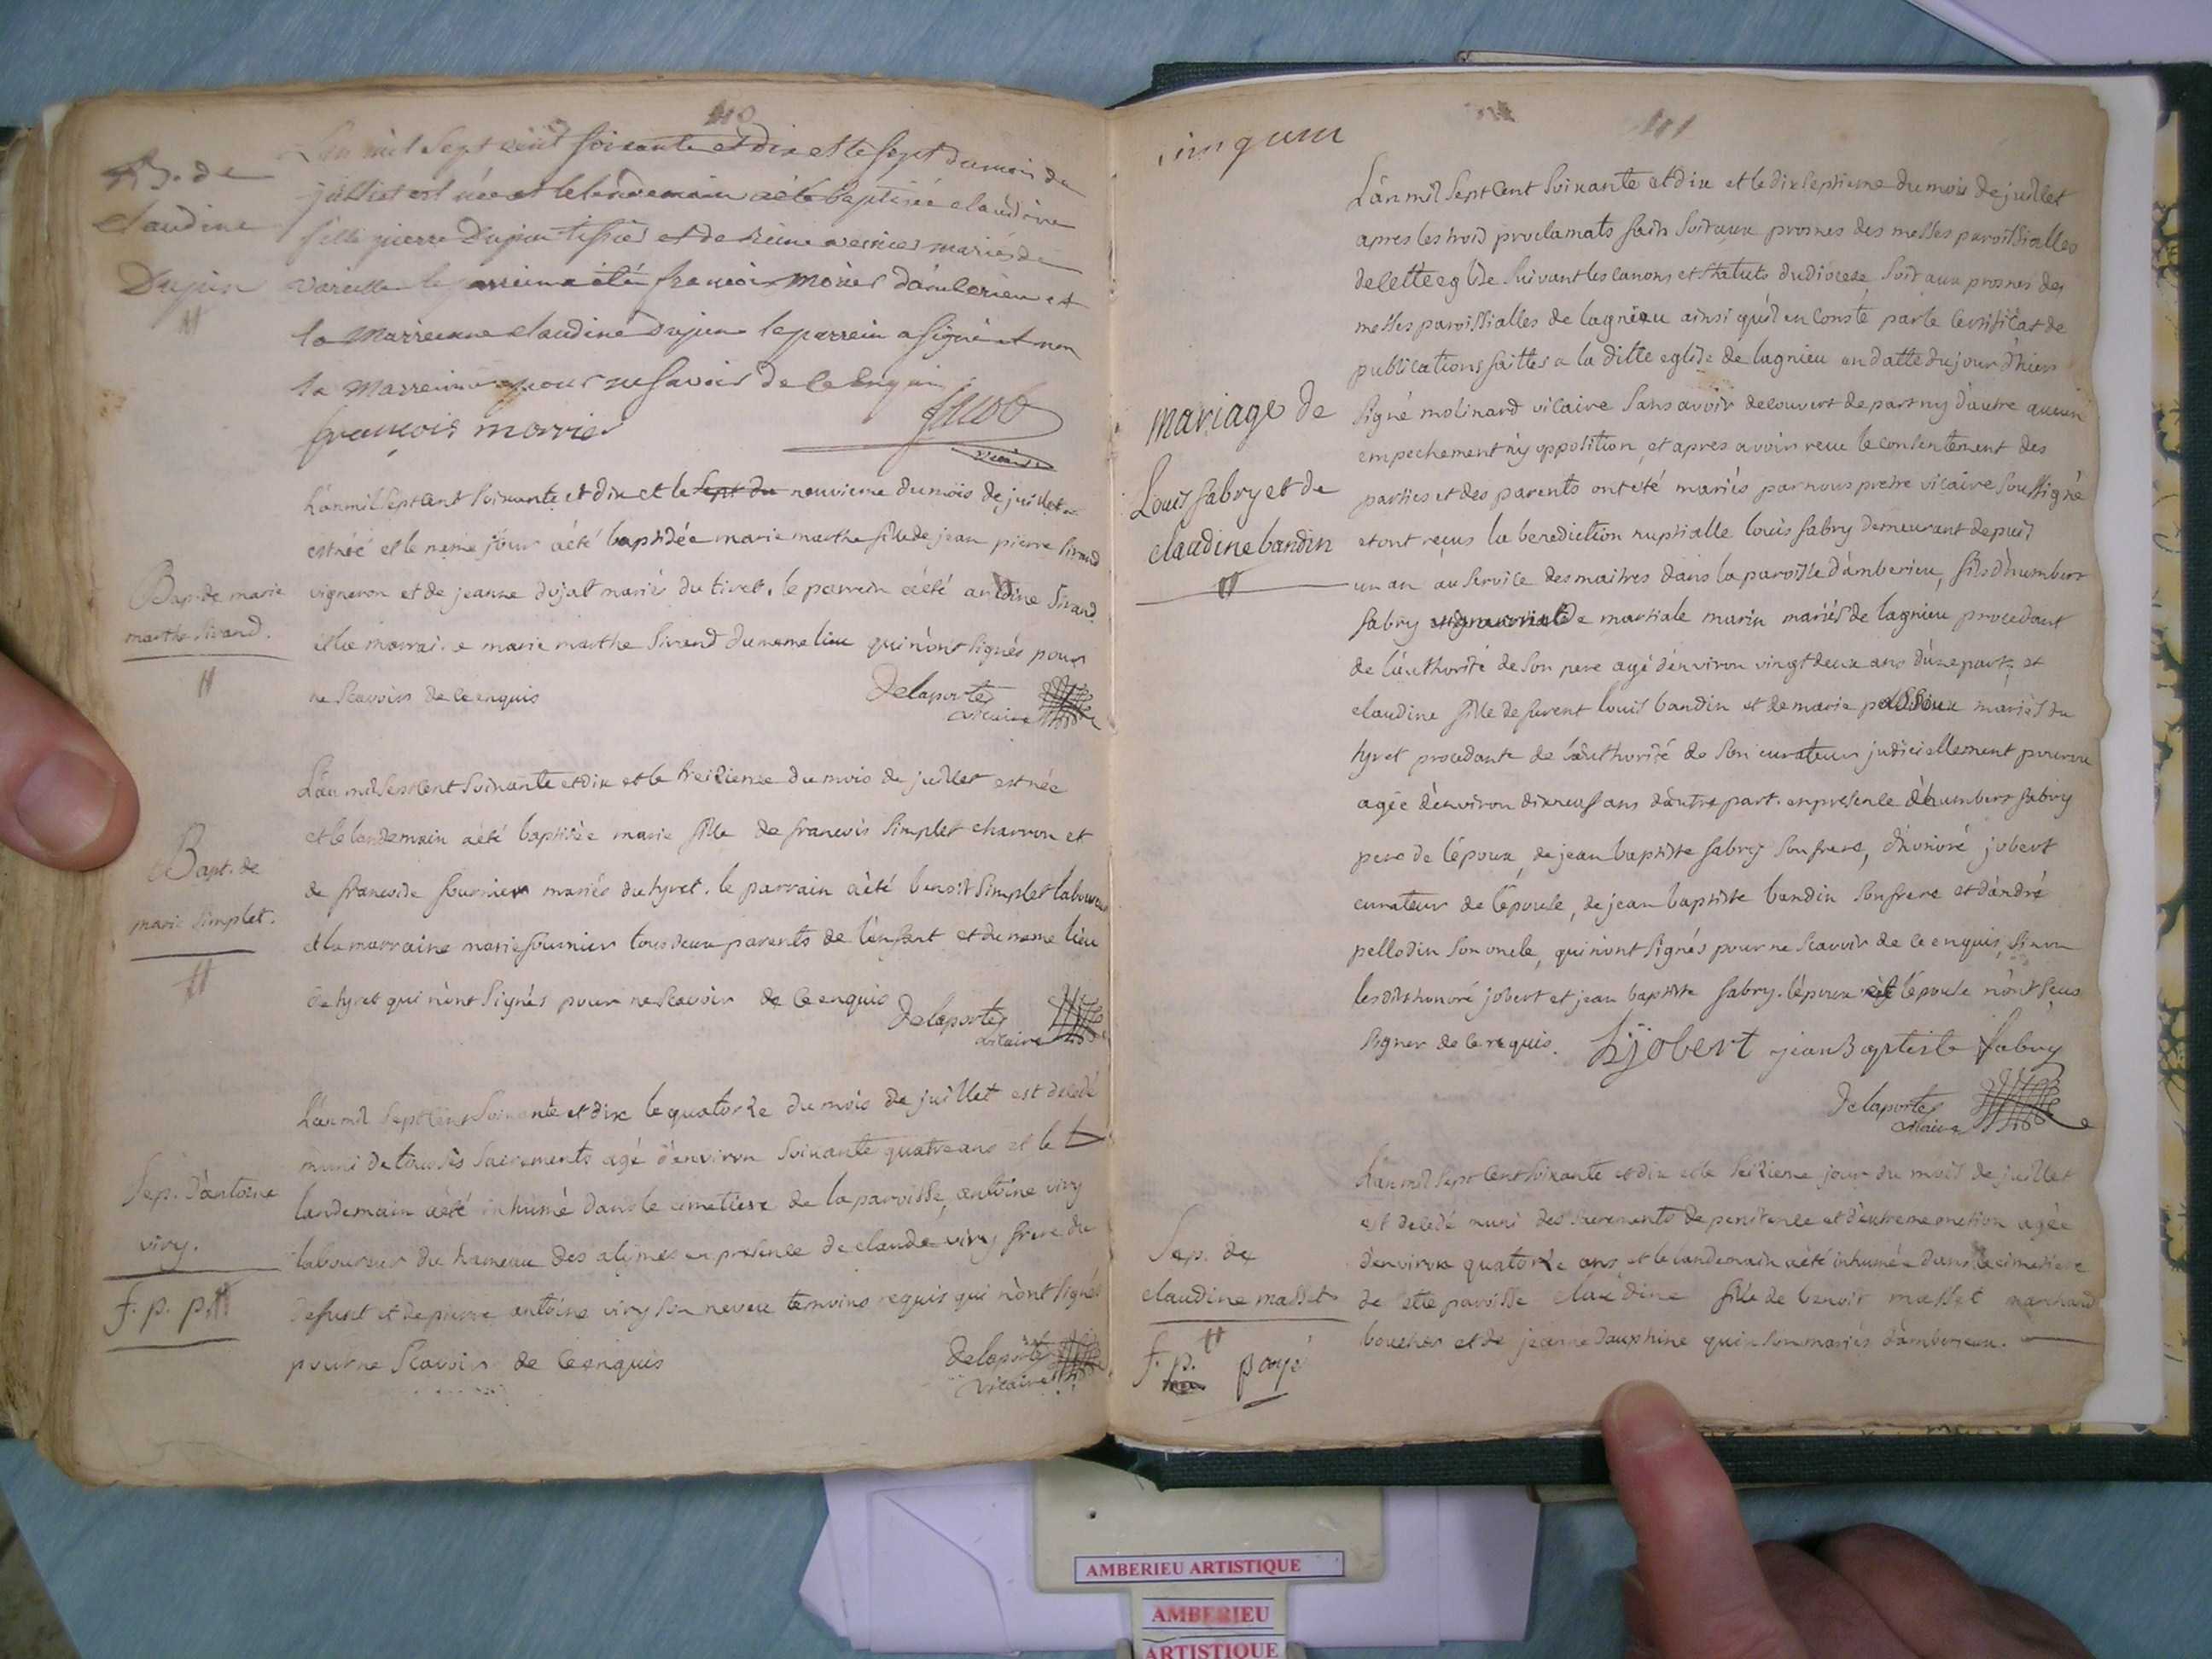 110
B. de
claudine
Dujeu
L'an mil sept cent soixante et dix et le sept du mois de
juillet est née et le lendemain a été baptisée claudine
fille pierre Dujeu tissier et de reine mariés de
vareille le été françois morier d'amberieu et
la marreinne claudine Dujeu le parrein a signé et non
la marreinne pour ne savoir de ce enquis
françois morrier
vicaire
Bap. de marie
marthe sirand.
L'an mil sept cent soixante et dix et le sept du neuvieme du mois de juillet
est née et le meme jour a été baptisée marie marthe fille de jean pierre sirand
vigneron et de jeanne dujat mariés du tiret. le parrein a été antoine sirand
et la marraine marie marthe sirand du meme lieu qui n'ont signés pour
ne scavoir de ce enquis Delaporte
vicaire
Bapt. de
marie simplet.
L'an mil sept cent soixante et dix et le treizieme du mois de juillet est née
et le landemain a été baptisée marie fille de francois simplet charron et
de francoise fournier mariés du tyret. le parrain a été benoit simplet laboureur
et la marraine marie fournier tous deux parents de l'enfant et du meme lieu
de tyret qui n'ont signés pour ne scavoir de ce enquis Delaporte
vicaire
Sep. d'antoine
viry.
f. p. p.
L'an mil sept cent soixante et dix le quatorze du mois de juillet est decedé
muni de tous ses sacrements agé d'environ soixante quatre ans et le
landemain a été inhumé dans le cimetiere de la paroisse, antoine viry
laboureur du hameau des alymes en presence de claude viry frere du
defunt et de pierre antoine viry son neveu temoins requis qui n'ont signés
pour ne scavoir de ce enquis Delaporte
vicaire
111
mariage de
Louis fabry et de
claudine bandin
L'an mil sept cent soixante et dix et le dix septieme du mois de juillet
apres les trois proclamats faits soit aux prosnes des messes paroissialles
de cette eglise suivant les canons et statuts du diocese, soit aux prosnes des
messes paroissialles de lagnieu ainsi qu'il en conste par le certificat de
publications faittes a la ditte eglise de lagnieu en datte du jour d'hier
signé molinard vicaire sans avoir decouvert de part ny d'autre aucun
empechement ny opposition, et apres avoir recu le consentement des
parties et des parents ont été mariés par nous pretre vicaire soussigné
et ont reçus la benediction nuptialle louis fabry demeurant depuis
un an au service des maitres dans la paroisse d'amberieu, fils d'humbert
fabry de martiale marin mariés de lagnieu procedant
de l'authorité de son pere agé d'environ vingt deux ans d'une part, et
claudine fille de furent louis bandin et de marie mariés du
tyret procedante de l'authorité de son curateur judiciellement pourvu
agée d'environ dixneuf ans d'autre part. en presence d'humbert fabry
pere de l'époux, de jean baptiste fabry son frere, d'honoré jobert
curateur de l'épouse, de jean baptiste bandin son frere et d'andré
pellodin son oncle, qui n'ont signés pour ne scavoir de ce enquis, sinon
les dits honoré jobert et jean baptiste fabry. l'époux et l'épouse n'ont sçus
signer de ce requis. hjobert jean Baptiste fabry
Delaporte
vicaire
Sep. de
claudine masset
f. p. payé
L'an mil sept cent soixante et dix et le seizieme jour du mois de juillet
est decedé muni des sacrements de penitence et d'extreme onction agée
d'environ quatorze ans, et le landemain a été inhumée dans le cimetiere
de cette paroisse claudine fille de benoit masset marchand
boucher et de jeanne dauphine quinson mariés d'amberieu.
AMBERIEU ARTISTIQUE
AMBERIEU
ARTISTIQUE